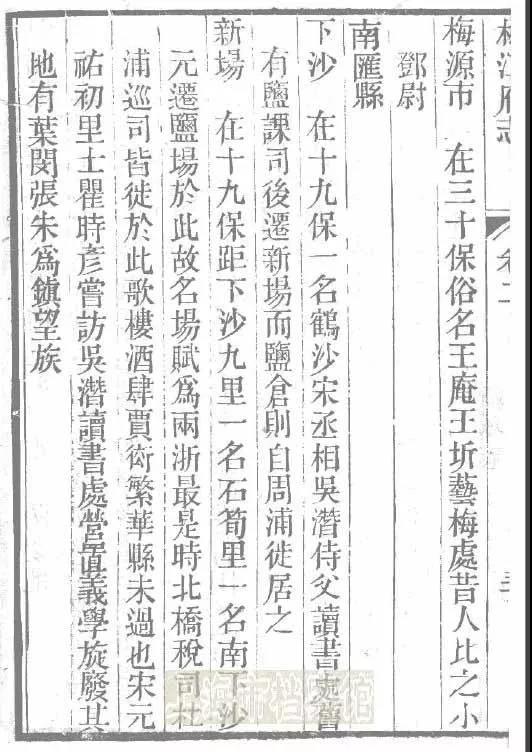 松江府志
卷二
梅源市　在三十保俗名王庵王圻藝梅處昔人比之小
鄧尉
南匯縣
下沙　在十九保一名鶴沙宋丞相吳潛侍父讀書處舊
有鹽課司後遷新場而鹽倉則自周浦徙居之
新場　在十九保距下沙九里一名石筍里一名南下沙
元遷鹽場於此故名場賦爲兩浙最是時北橋稅司杜
浦巡司皆徙於此歌樓酒肆賈衒繁華縣未過也宋元
祐初里士瞿時彥嘗訪吳潛讀書處營置義學旋廢其
地有葉閔張朱爲鎮望族
市档